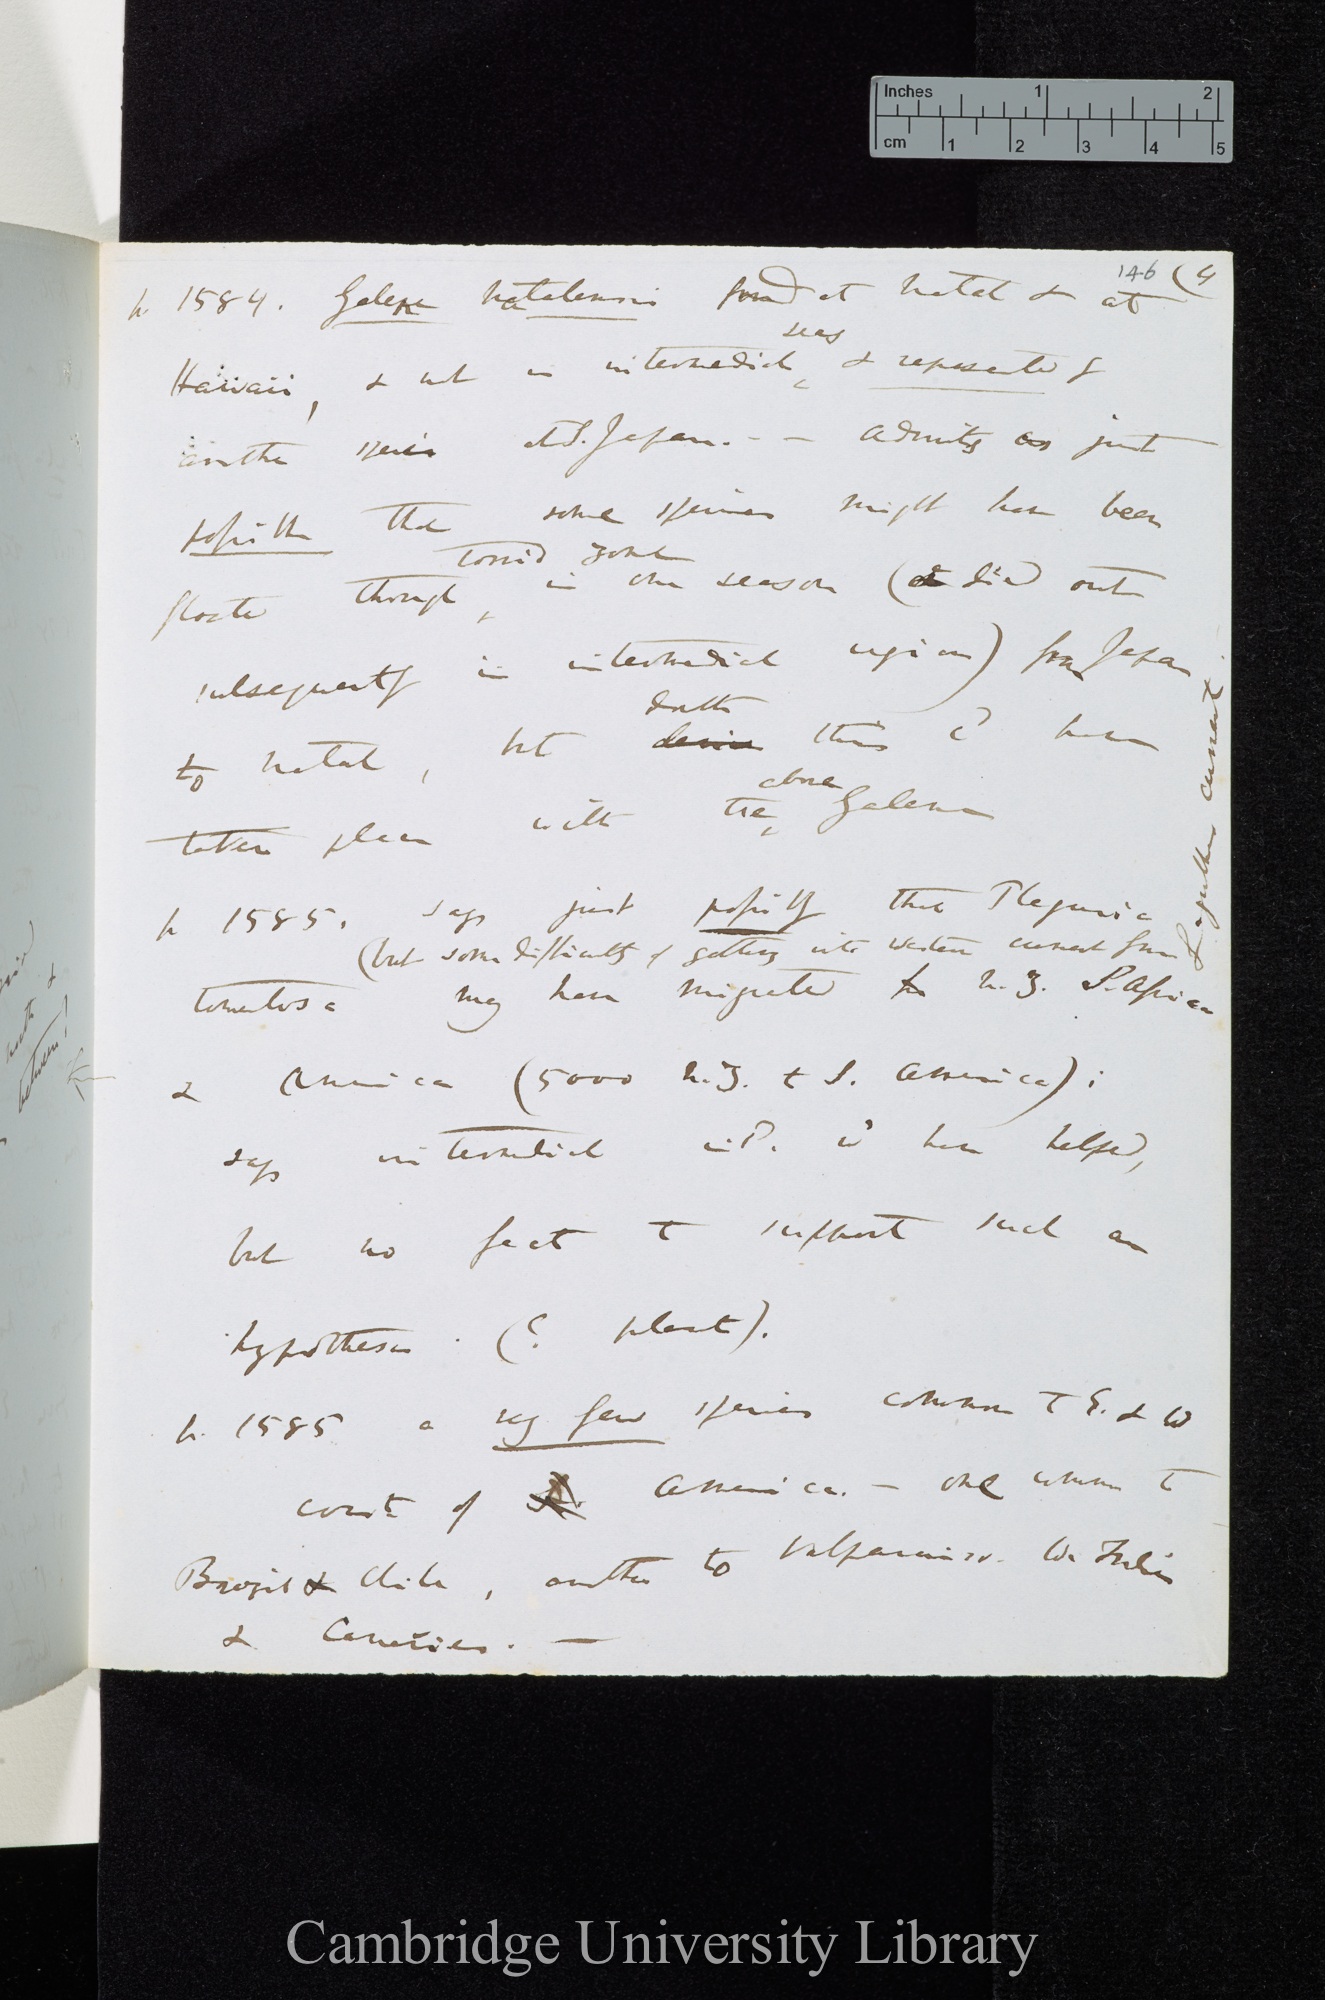 Inches 1 2
cm 1 2 3 4 5
146 (4
p 1584. Galene natalensis found at Natal & at
seas
Hawaii, & not in intermediate & represented by
another species at S. Japan. - - admits as just
possible that some species might have been
torrid zone
floated through in one season (& died out
subsequently in intermediate regions) from Japan
doubts
to Natal, but this cd have
above
taken place with the Galene
p 1585. says just possibly that Plagusia
(but some difficulty of getting into western current from
S. equatorial current
tomentosa may have migrated to N. Z. S. Africa
& America (5000 N. Z. to S. America):
says intermediate isd. cd have helped,
but no fact to support such an
hypothesis. (? plant).
p. 1585 a very few species common to E. & W
coast of America. - one common to
Brazil & Chile, another to Valparaiso. W. Indies
& Canaries. —
north &
between!
Cambridge University Library